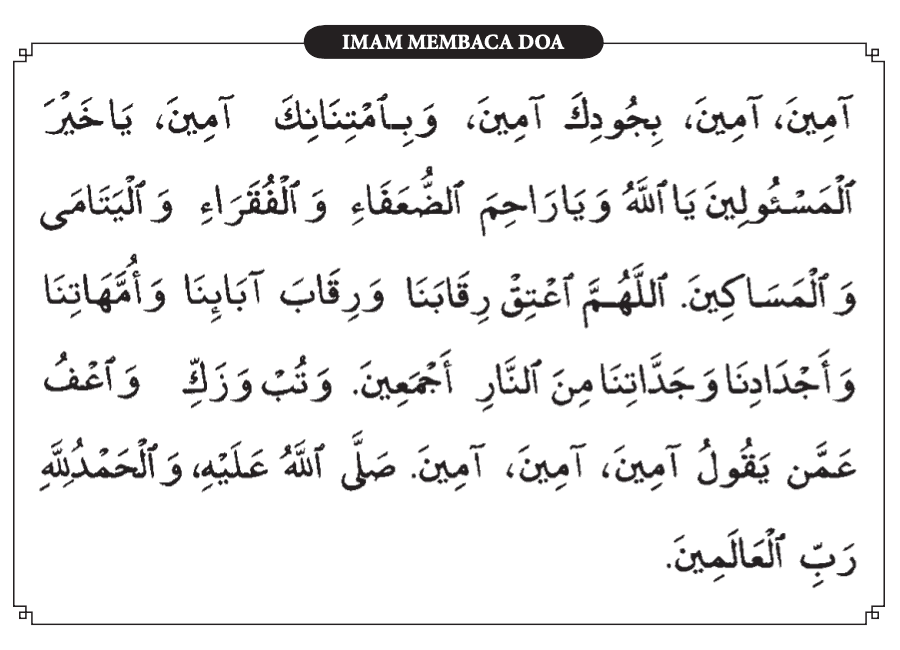 IMAM MEMBACA DOA
آمِينَ، آمِينَ، بِجُودِكَ آمِينَ، وَبِٱمْتِنَانِكَ آمِينَ، يَا خَيْرَ
ٱلْمَسْئُولِينَ يَا ٱللَّهُ وَيَارَاحِمَ ٱلضُّعَفَاءِ وَٱلْفُقَرَاءِ وَٱلْيَتَامَى
وَٱلْمَسَاكِينَ. ٱللَّهُمَّ ٱعْتِقْ رِقَابَنَا وَرِقَابَ آبَايِٕنَا وَأُمَّهَاتِنَا
وَأَجْدَادِنَا وَجَدَّاتِنَا مِنَ ٱلنَّارِ أَجْمَعِينَ. وَتُبْ وَزَكِّ وَٱعْفُ
عَمَّن يَقُولُ آمِينَ، آمِينَ، آمِينَ. صَلَّى ٱللَّهُ عَلَيْهِ، وَٱلْحَمْدُلِلَّهِ
رَبِّ ٱلْعَالَمِينَ.